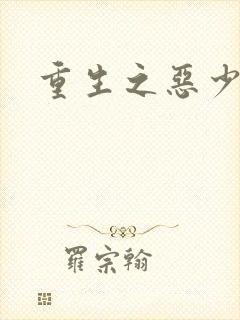 重生之惡少
羅宗翰